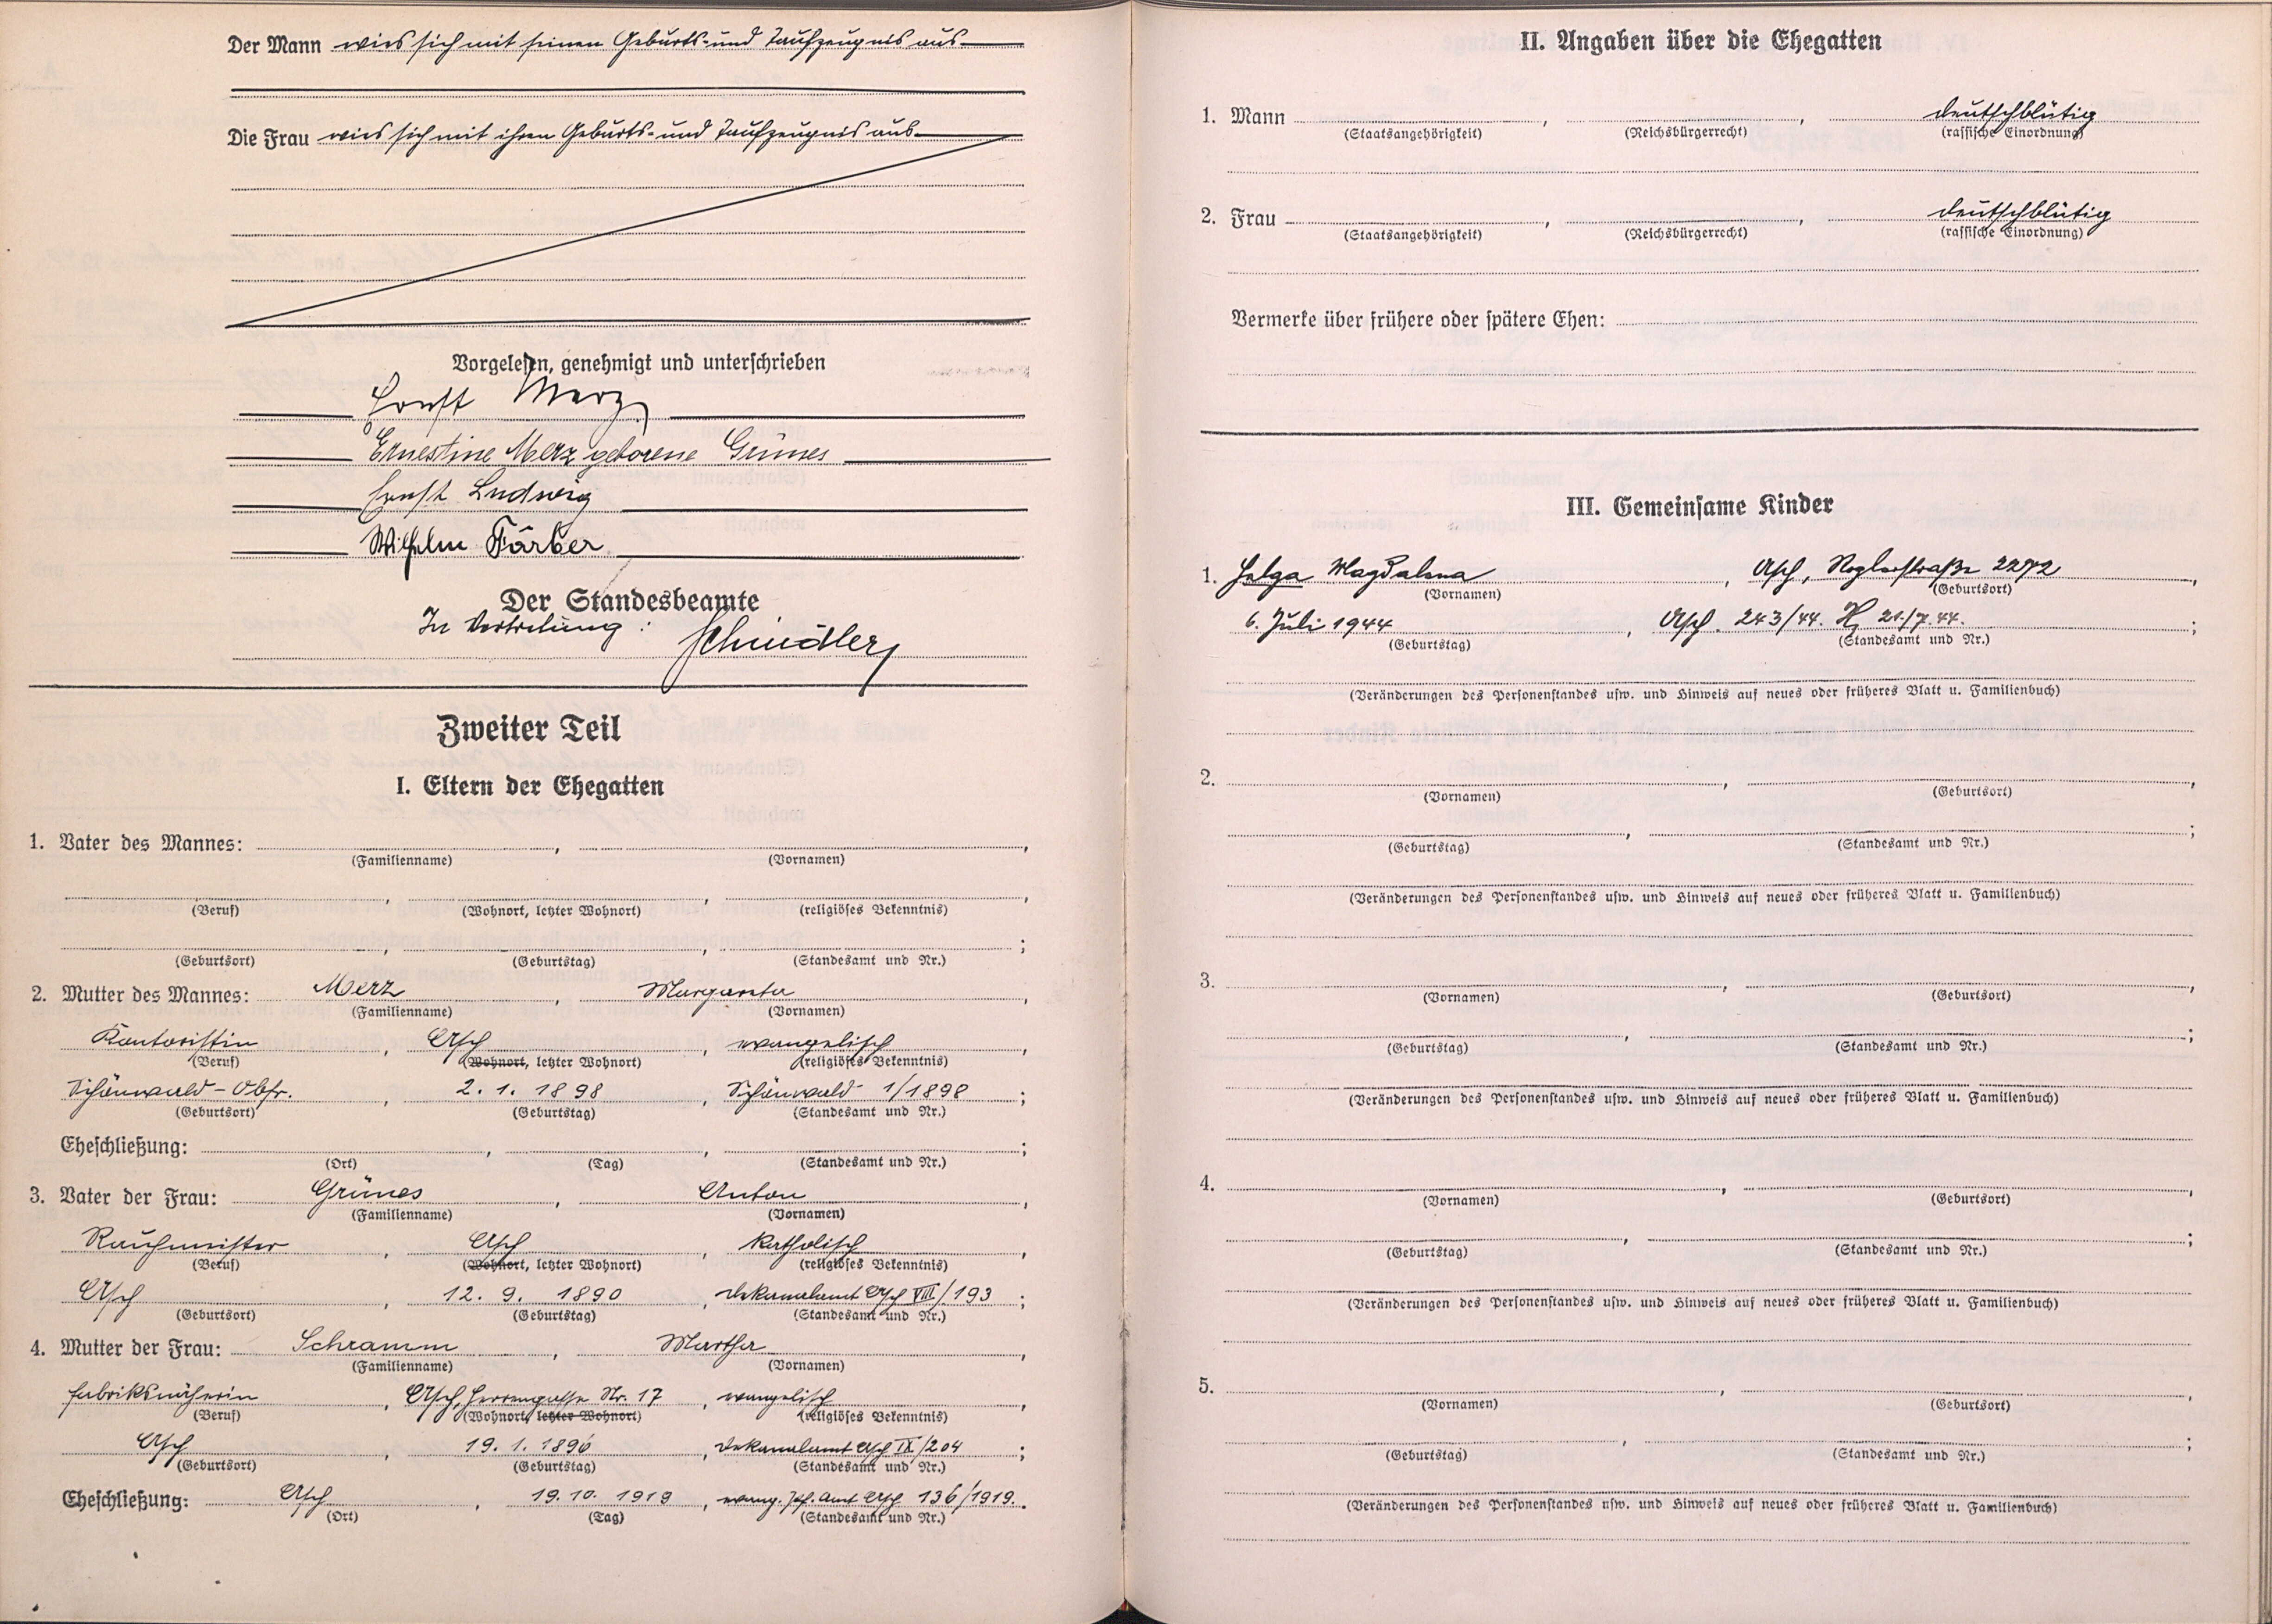 Der Mann wies sich mit seinen Geburts- und Taufzeugnis aus
Die Frau wies sich mit ihren Geburts- und Taufzeugnis aus
Vorgelesen, genehmigt und unterschrieben
Ernst Merz
Ernestine Merz geborene Grünes
Ernst Ludwig
Wilhelm Färber
Der Standesbeamte
In Vertretung: Schindler
Zweiter Teil
I. Eltern der Ehegatten
1. Vater des Mannes: , ,
(Familienname) (Vornamen)
, , ,
(Beruf) (Wohnort, letzter Wohnort) (religiöses Bekenntnis)
, , ;
(Geburtsort) (Geburtstag) (Standesamt und Nr.)
2. Mutter des Mannes: Merz , Margareta ,
(Familienname) (Vornamen)
Kontoristin , Asch , evangelisch ,
(Beruf) (Wohnort, letzter Wohnort) (religiöses Bekenntnis)
Schönwald-Obfr. , 2. 1. 1898 , Schönwald 1/1898 ;
(Geburtsort) (Geburtstag) (Standesamt und Nr.)
Eheschließung: , , ;
(Ort) (Tag) (Standesamt und Nr.)
3. Vater der Frau: Grünes , Anton ,
(Familienname) (Vornamen)
Rauhmeister , Asch , katholisch ,
(Beruf) (Wohnort, letzter Wohnort) (religiöses Bekenntnis)
Asch , 12. 9. 1890 , Dekanalamt Asch VIII/193 ;
(Geburtsort) (Geburtstag) (Standesamt und Nr.)
4. Mutter der Frau: Schramm , Martha ,
(Familienname) (Vornamen)
Fabriksnäherin , Asch, Herrengasse Nr. 17 , evangelisch ,
(Beruf) (Wohnort, letzter Wohnort) (religiöses Bekenntnis)
Asch , 19. 1. 1896 , Dekanalamt Asch IX/204 ;
(Geburtsort) (Geburtstag) (Standesamt und Nr.)
Eheschließung: Asch , 19. 10. 1919 , evang. Pf. Amt Asch 136/1919.
(Ort) (Tag) (Standesamt und Nr.)
II. Angaben über die Ehegatten
1. Mann , , deutschblütig
(Staatsangehörigkeit) (Reichsbürgerrecht) (rassische Einordnung)
2. Frau , , deutschblütig
(Staatsangehörigkeit) (Reichsbürgerrecht) (rassische Einordnung)
Vermerke über frühere oder spätere Ehen:
III. Gemeinsame Kinder
1. Helga Magdalena , Asch, Roglerstraße 2272 ,
(Vornamen) (Geburtsort)
6. Juli 1944 , Asch. 243/44. 21./7.44. ;
(Geburtstag) (Standesamt und Nr.)
(Veränderungen des Personenstandes usw. und Hinweis auf neues oder früheres Blatt u. Familienbuch)
2. , ,
(Vornamen) (Geburtsort)
, ;
(Geburtstag) (Standesamt und Nr.)
(Veränderungen des Personenstandes usw. und Hinweis auf neues oder früheres Blatt u. Familienbuch)
3. , ,
(Vornamen) (Geburtsort)
, ;
(Geburtstag) (Standesamt und Nr.)
(Veränderungen des Personenstandes usw. und Hinweis auf neues oder früheres Blatt u. Familienbuch)
4. , ,
(Vornamen) (Geburtsort)
, ;
(Geburtstag) (Standesamt und Nr.)
(Veränderungen des Personenstandes usw. und Hinweis auf neues oder früheres Blatt u. Familienbuch)
5. , ,
(Vornamen) (Geburtsort)
, ;
(Geburtstag) (Standesamt und Nr.)
(Veränderungen des Personenstandes usw. und Hinweis auf neues oder früheres Blatt u. Familienbuch)